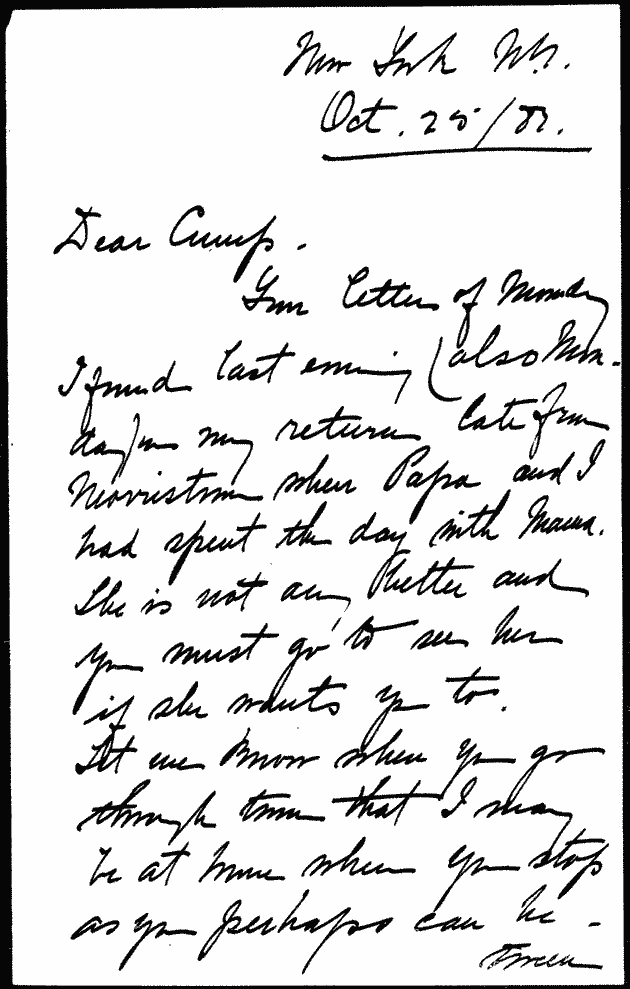 New York N.Y.
Oct. 25/82.
Dear Crump.
Your letter of Monday
I found last evening (also Mon-
day) on my return late from
Morristown when Papa and I
had spent the day with Mama.
She is not any better and
you must go to see her
if she wants you to.
Let me know when you go
through town that I may
be at home when you stop
as you perhaps can be -
tween